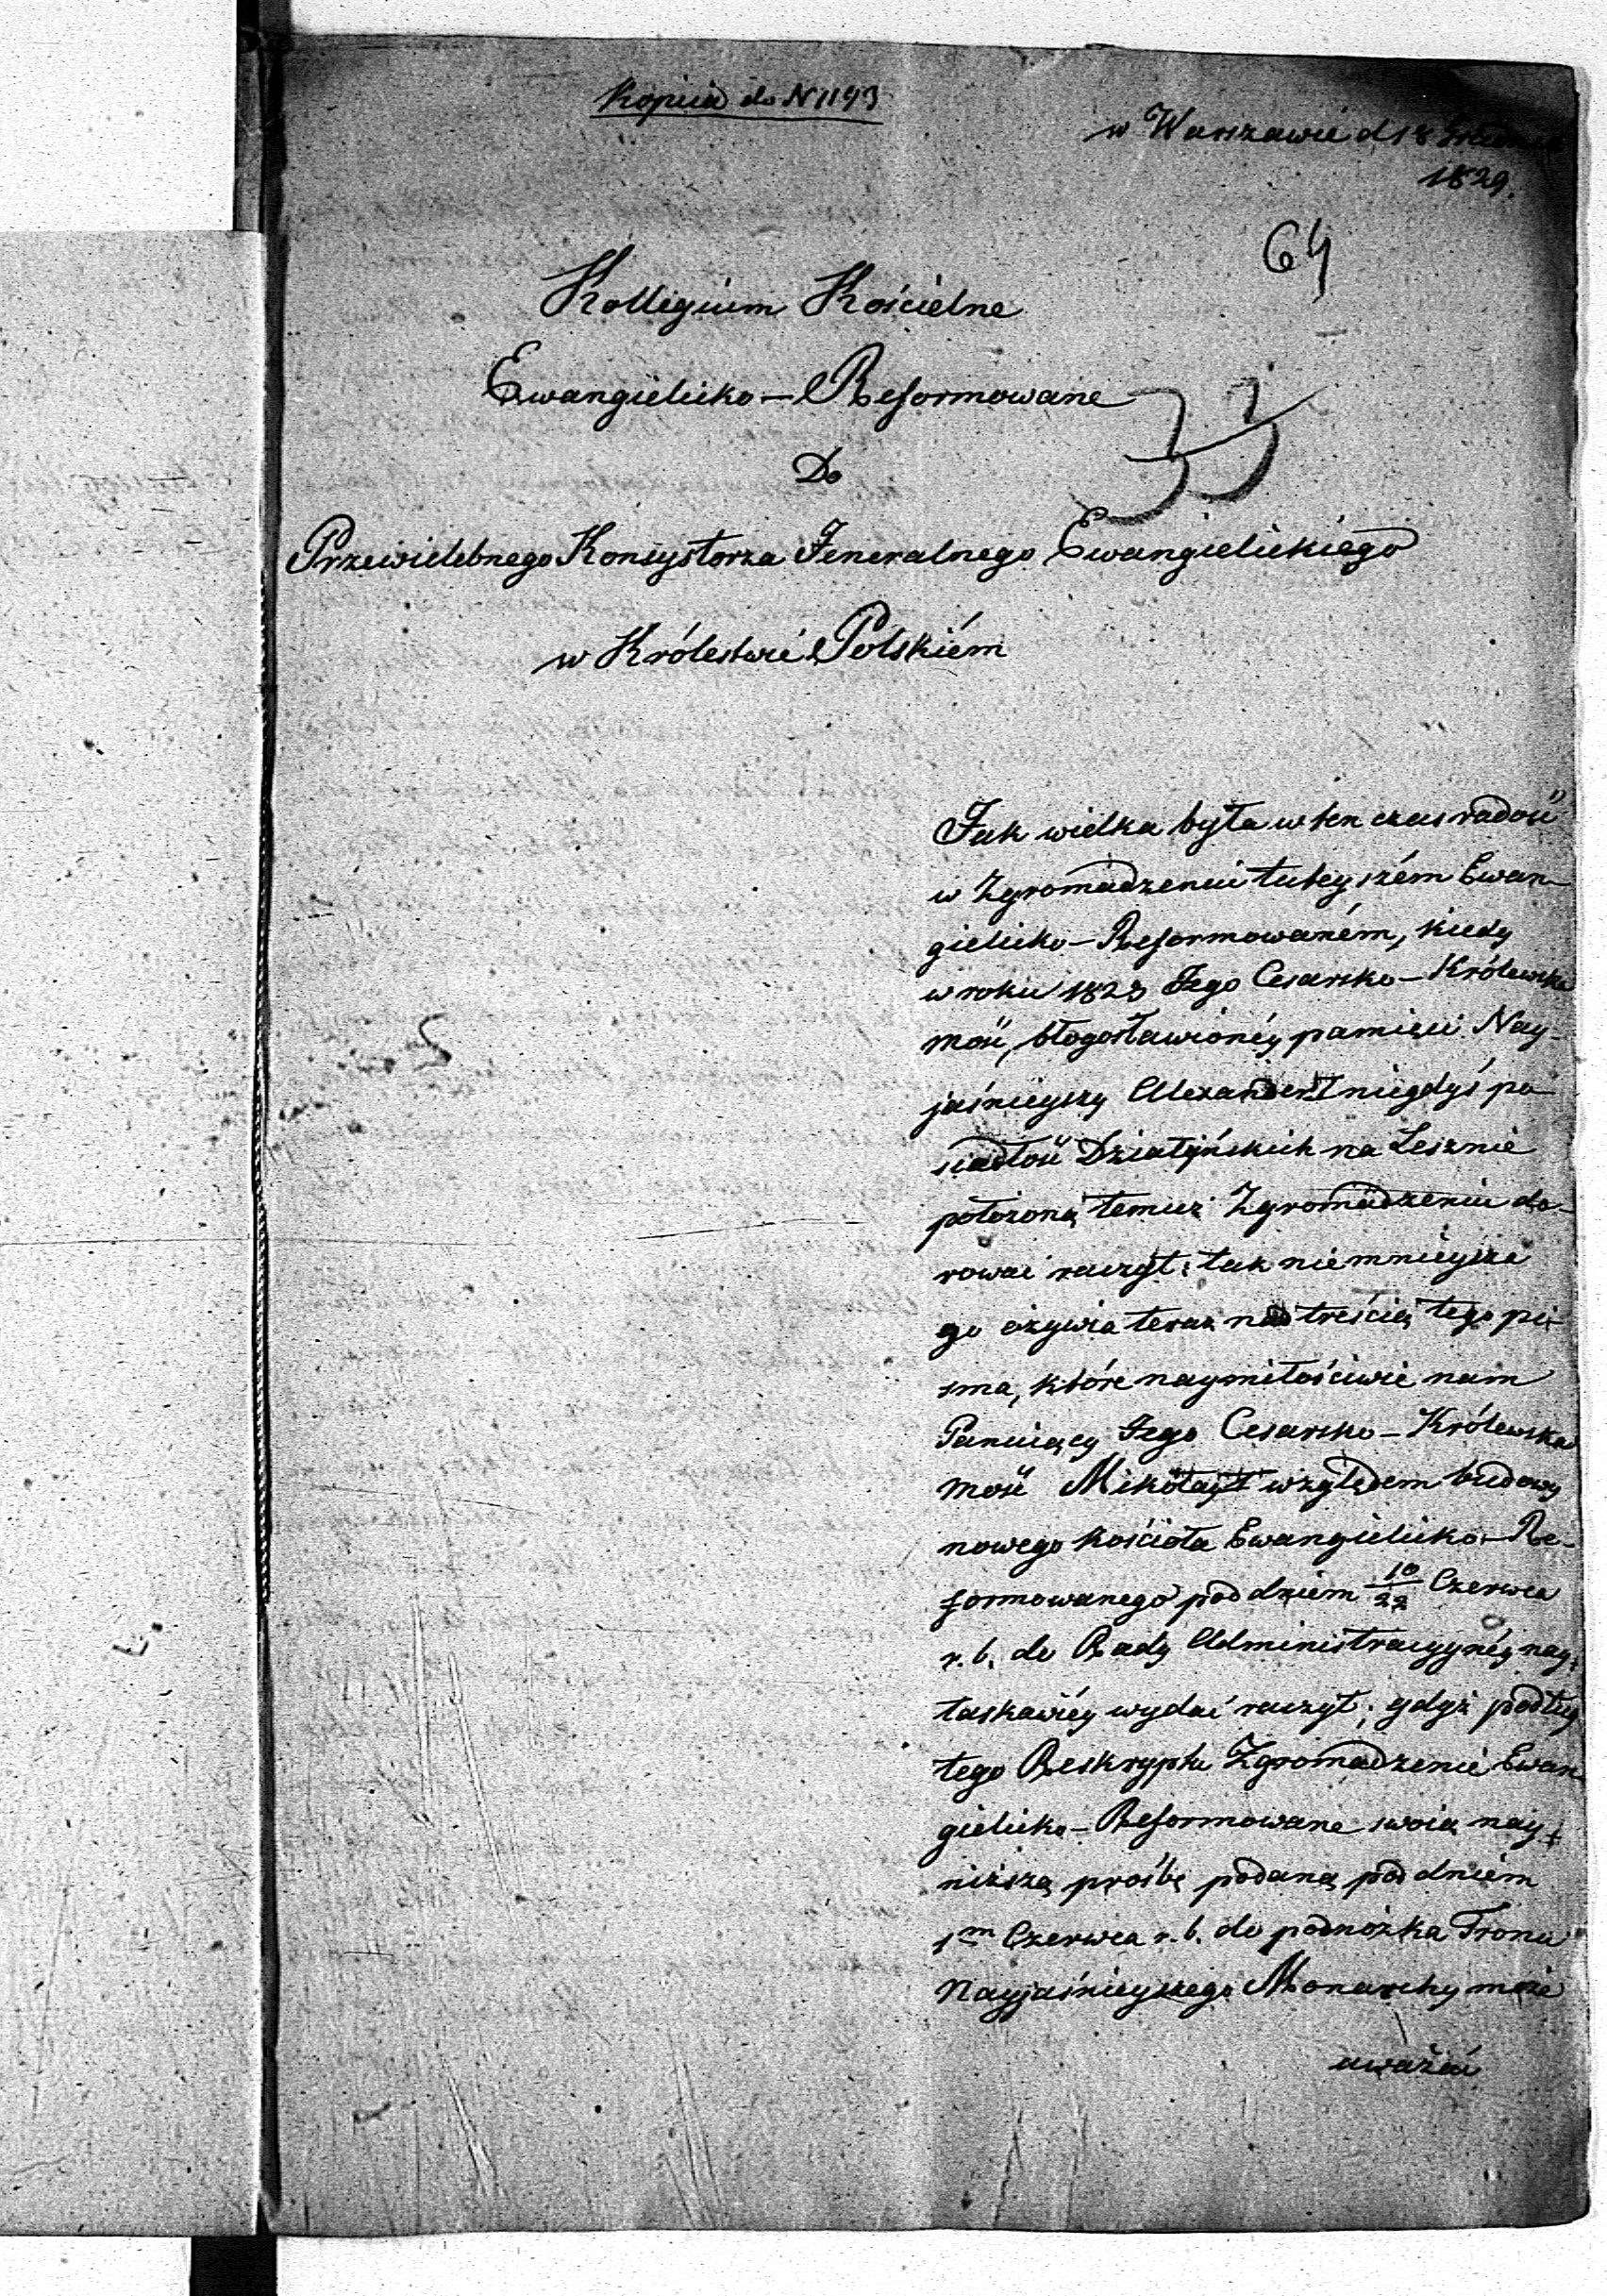 Kopiia do N 1193
w Warszawie d 18
1829.
64
Kollegium Kościelne
Ewangielicko-Reformowane
Do
Przewielebnego Konsystorza Jeneralnego Ewangielickiego
w Królestwie Polskiém
Jak wielka była w ten czas radość
w Zgromadzeniu tuteyszém Ewan-
gielicko-Reformowaném, kiedy
w roku 1823 Jego Cesarsko-Królewska
mość, błogosławionéy pamięci Nay-
jaśnieyszy Alexander I niegdyś po-
siadłość Działyńskich na Lesznie
położoną temuż Zgromadzeniu da-
rować raczył; tak niemnieysza
go ożywia teraz nad treścią tego pi-
sma, które naymiłościwie nam
Panuiący Jego Cesarsko-Królewska
mość Mikołaj I względem budowy
nowego kościoła Ewangielicko-Re-
formowanego pod dniem 10/22 Czerwca
r. b. do Rady Administracyynéy nay-
łaskawiéy wydać raczył; gdyż podług
tego Reskryptu Zgromadzenie Ewan-
gielicko-Reformowane swoią nay-
niższą prośbę podaną pod dniem
1m Czerwca r. b. do podnóżka Tronu
Nayjaśnieyszego Monarchy może
uważać